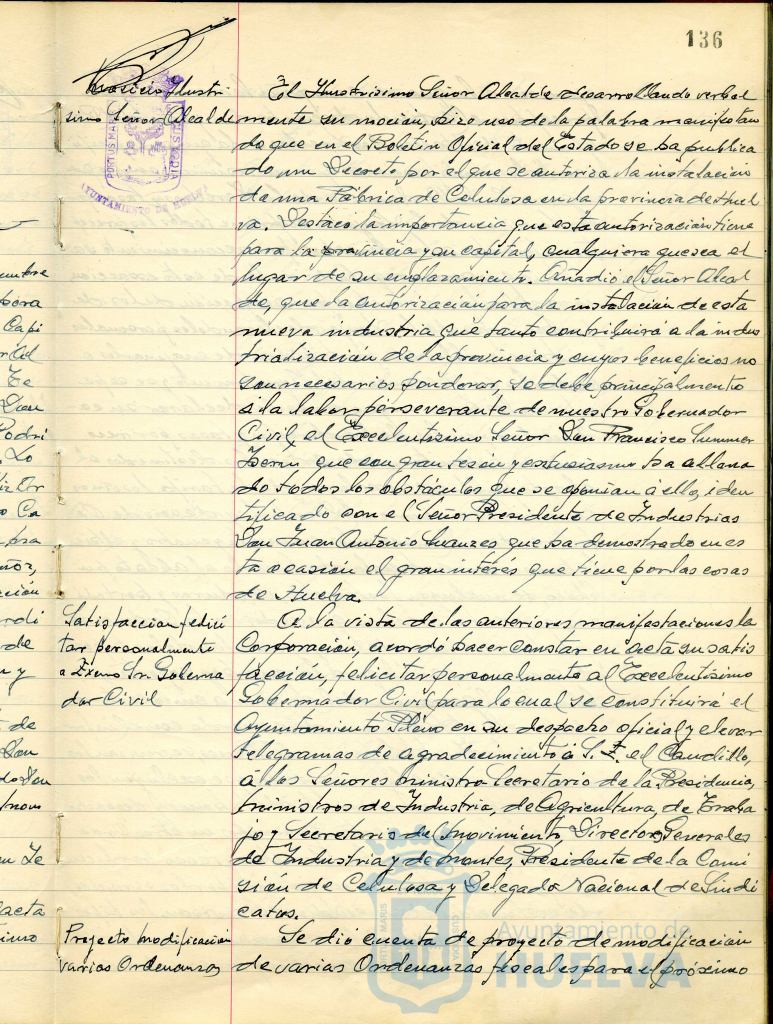 136
Moción Ilustri
simo Señor Alcalde
PORTUS MARIS
AYUNTAMIENTO DE HUELVA
El Ilustrisimo Señor Alcalde desarrollando verbal
mente su moción, hizo uso de la palabra manifestan
do que en el Boletin Oficial del Estado se ha publica
do un Decreto por el que se autoriza la instalación
de una Fábrica de Celulosa en la provincia de Huel
va. Destacó la importancia que esta autorización tiene
para la provincia y su capital, cualquiera que sea el
lugar de su emplazamiento. Añadió el Señor Alcal
de, que la autorización para la instalación de esta
nueva industria que tanto contribuirá a la indus
trialización de la provincia y cuyos beneficios no
son necesarios ponderar, se debe principalmente
a la labor perseverante de nuestro Gobernador
Civil, el Excelentisimo Señor Don Francisco Summer
que con gran tesón y entusiasmo ha allana
do todos los obstáculos que se oponian á ello, iden
tificado con el Señor Presidente de Industrias
Don Juan Antonio Suanzes que ha demostrado en es
ta ocasión el gran interés que tiene por las cosas
de Huelva.
Satisfaccion felici
tar personalmente
a Exmo Sr. Goberna
dor Civil
A la vista de las anteriores manifestaciones la
Corporación, acordó hacer constar en acta su satis
facción, felicitar personalmente al Excelentisimo
Gobernador Civil para lo cual se constituirá el
Ayuntamiento Pleno en su despacho oficial y elevar
telegramas de agradecimiento á S. E. el Caudillo,
á los Señores Ministro Secretario de la Presidencia,
Ministros de Industria, de Agricultura, de Traba
jo y Secretario del Movimiento, Directores Generales
de Industria y de Montes, Presidente de la Comi
sión de Celulosa y Delegado Nacional de Sindi
catos.
Proyecto modificación
varias Ordenanzas
Se dió cuenta de proyecto de modificación
de varias Ordenanzas fiscales para el próximo
Ayuntamiento de
HUELVA